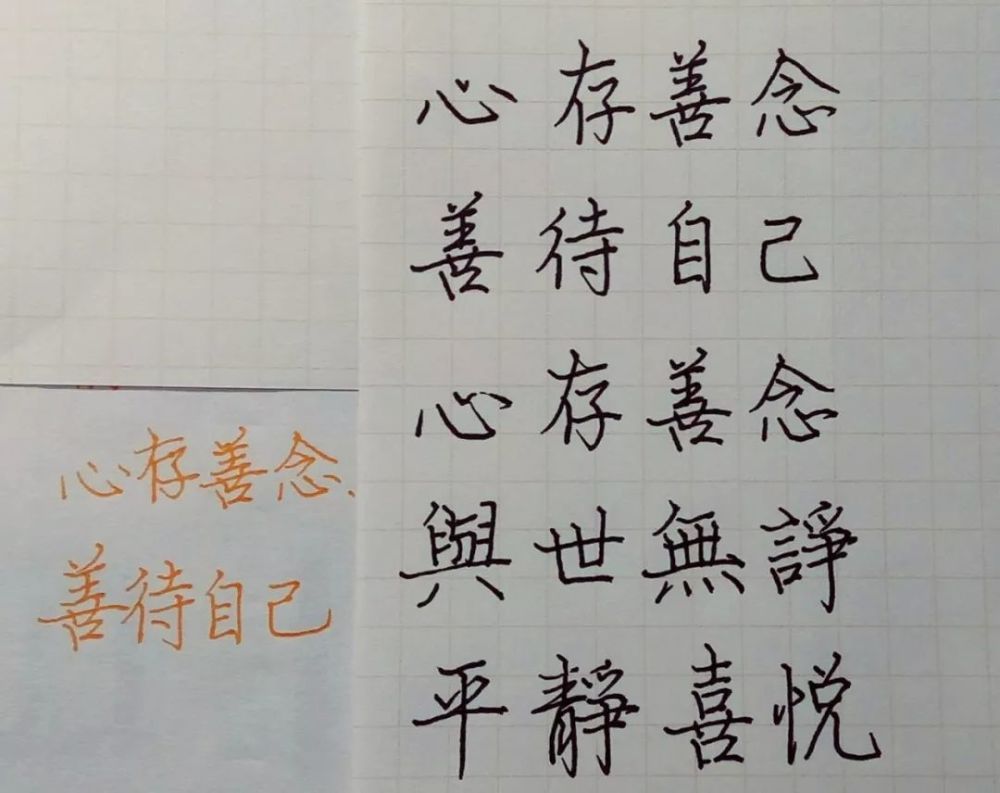 心存善念
善待自己
心存善念
與世無諍
平靜喜悅
心存善念、
善待自己